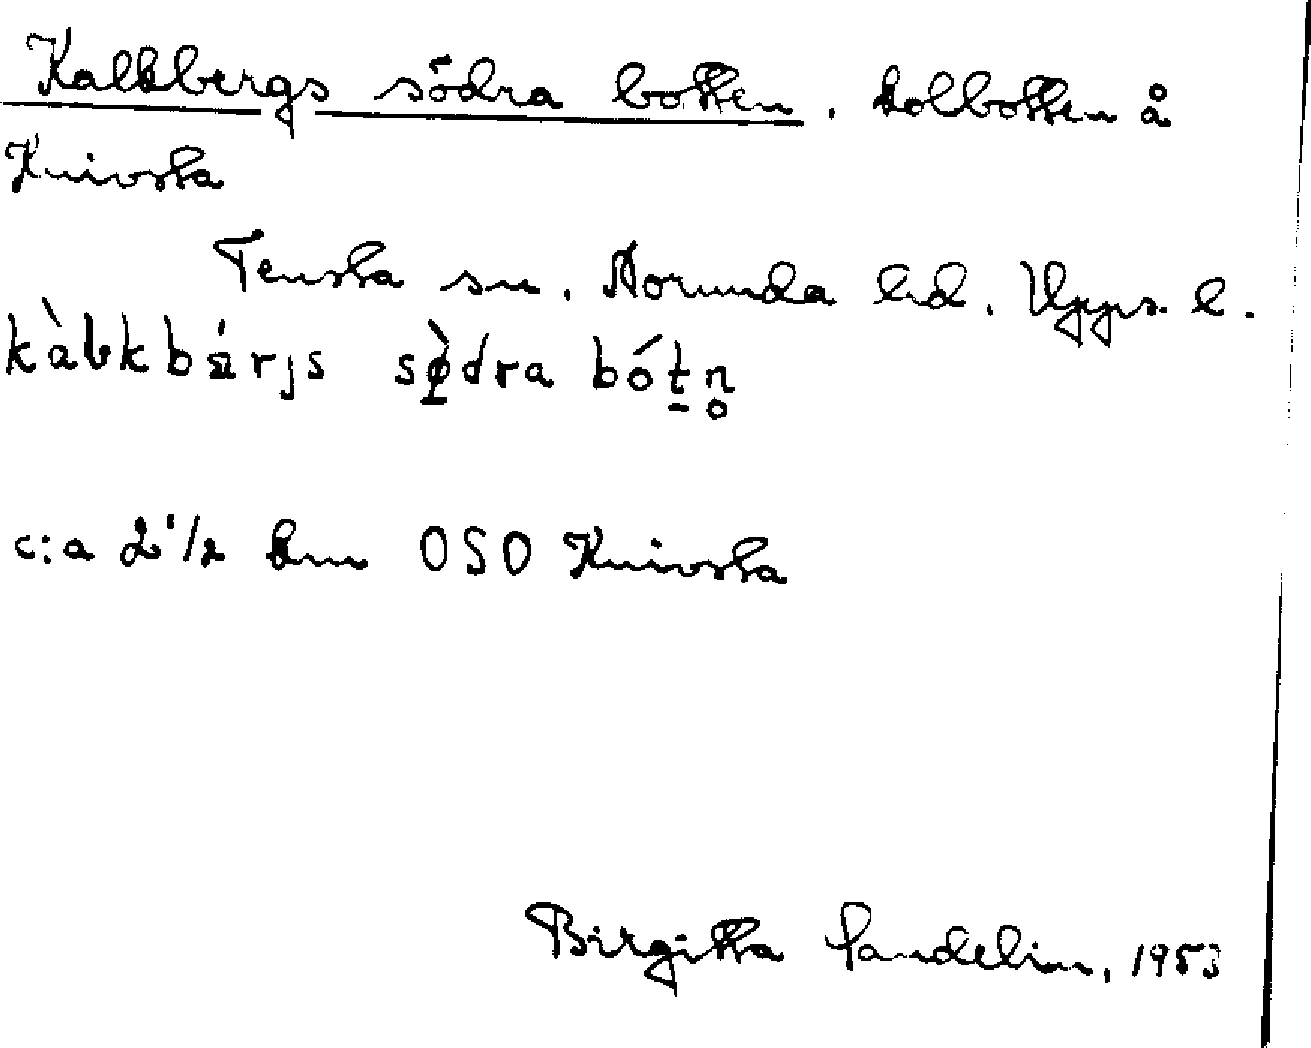 Kalkbergs södra botten. kolbotten å
Knivsta
Tensta sn. Norunda hd. Upps. l.
kàlkbä́rjs sø̀dra bót̠n̥
c:a 2 1/2 km OSO Knivsta
Birgitta Sandelin, 1953